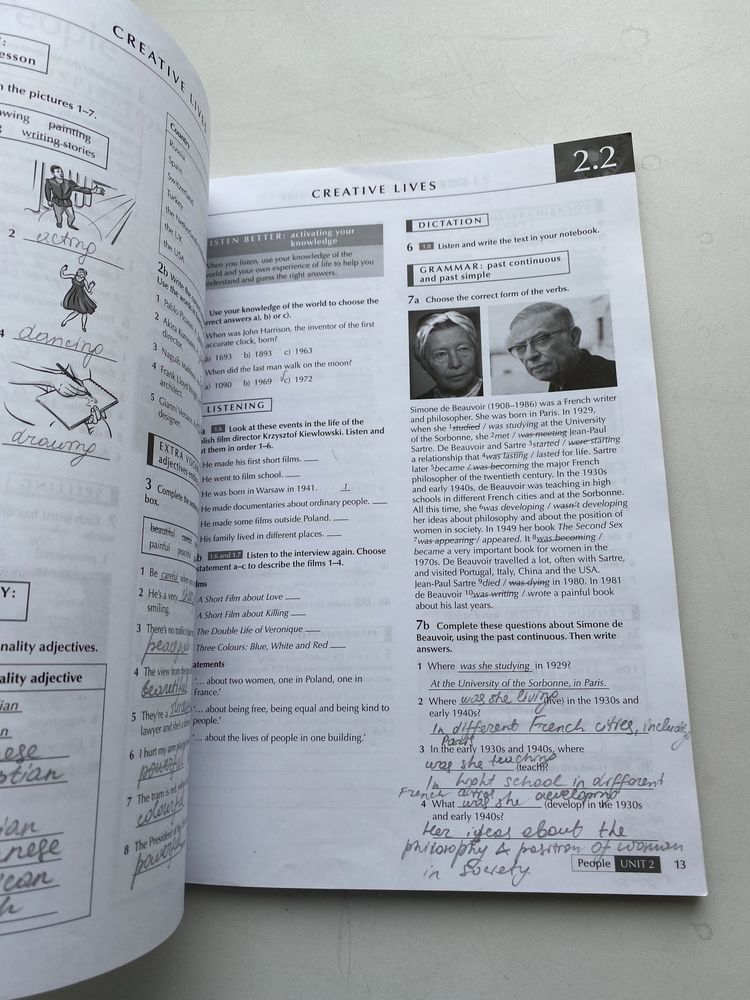 CREATIVE LIVES
esson
n the pictures 1–7.
wing painting
writing stories
2 acting
dancing
drawing
Y:
nality adjectives.
ality adjective
Country
Russia
Spain
Switzerland
Turkey
the Netherlands
the UK
the USA
2b Write the
Use the
1 Pablo
2 Akira
director.
3 Naguib
4 Frank Lloyd
architect.
5 Gianni
designer.
EXTRA
adjectives
3 Complete the
box.
beautiful
painful peaceful
1 Be careful when
2 He's a very
smiling.
3 There's no traffic
peaceful
4 The view from the
beautiful
5 They're a
lawyer and she's
6 I hurt my arm
powerful
7 The tram is red,
colourful
8 The President of
powerful
CREATIVE LIVES
2.2
ISTEN BETTER: activating your
knowledge
When you listen, use your knowledge of the
world and your own experience of life to help you
understand and guess the right answers.
Use your knowledge of the world to choose the
rrect answers a), b) or c).
When was John Harrison, the inventor of the first
accurate clock, born?
a) 1693 b) 1893 c) 1963
When did the last man walk on the moon?
a) 1090 b) 1969 c) 1972
LISTENING
a 1.6 Look at these events in the life of the
olish film director Krzysztof Kiewlowski. Listen and
ut them in order 1–6.
He made his first short films.
He went to film school.
He was born in Warsaw in 1941. 1
He made documentaries about ordinary people.
He made some films outside Poland.
His family lived in different places.
b 1.6 and 1.7 Listen to the interview again. Choose
statement a–c to describe the films 1–4.
lms
A Short Film about Love
A Short Film about Killing
The Double Life of Veronique
Three Colours: Blue, White and Red
atements
'... about two women, one in Poland, one in
France.'
'... about being free, being equal and being kind to
people.'
'... about the lives of people in one building.'
DICTATION
6 1.8 Listen and write the text in your notebook.
GRAMMAR: past continuous
and past simple
7a Choose the correct form of the verbs.
Simone de Beauvoir (1908–1986) was a French writer
and philosopher. She was born in Paris. In 1929,
when she 1studied / was studying at the University
of the Sorbonne, she 2met / was meeting Jean-Paul
Sartre. De Beauvoir and Sartre 3started / were starting
a relationship that 4was lasting / lasted for life. Sartre
later 5became / was becoming the major French
philosopher of the twentieth century. In the 1930s
and early 1940s, de Beauvoir was teaching in high
schools in different French cities and at the Sorbonne.
All this time, she 6was developing / wasn't developing
her ideas about philosophy and about the position of
women in society. In 1949 her book The Second Sex
7was appearing / appeared. It 8was becoming /
became a very important book for women in the
1970s. De Beauvoir travelled a lot, often with Sartre,
and visited Portugal, Italy, China and the USA.
Jean-Paul Sartre 9died / was dying in 1980. In 1981
de Beauvoir 10was writing / wrote a painful book
about his last years.
7b Complete these questions about Simone de
Beauvoir, using the past continuous. Then write
answers.
1 Where was she studying in 1929?
At the University of the Sorbonne, in Paris.
2 Where was she living (live) in the 1930s and
early 1940s?
In different French cities, including
Paris
3 In the early 1930s and 1940s, where
was she teaching (teach)?
In hight school in different
French cities
4 What was she developing (develop) in the 1930s
and early 1940s?
Her ideas about the
philosophy & position of woman
in society
People UNIT 2 13